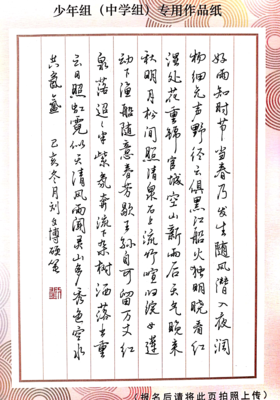 少年组（中学组）专用作品纸
好雨知时节当春乃发生随风潜入夜润
物细无声野径云俱黑江船火独明晓看红
湿处花重锦官城空山新雨后天气晚来
秋明月松间照清泉石上流竹喧归浣女莲
动下渔船随意春芳歇王孙自可留万丈红
泉落迢々半紫氛奔流下杂树洒落出重
云日照虹霓似天清风雨闻灵山多秀色空水
共氤氲 己亥冬月刘
（报名后请将此页拍照上传）